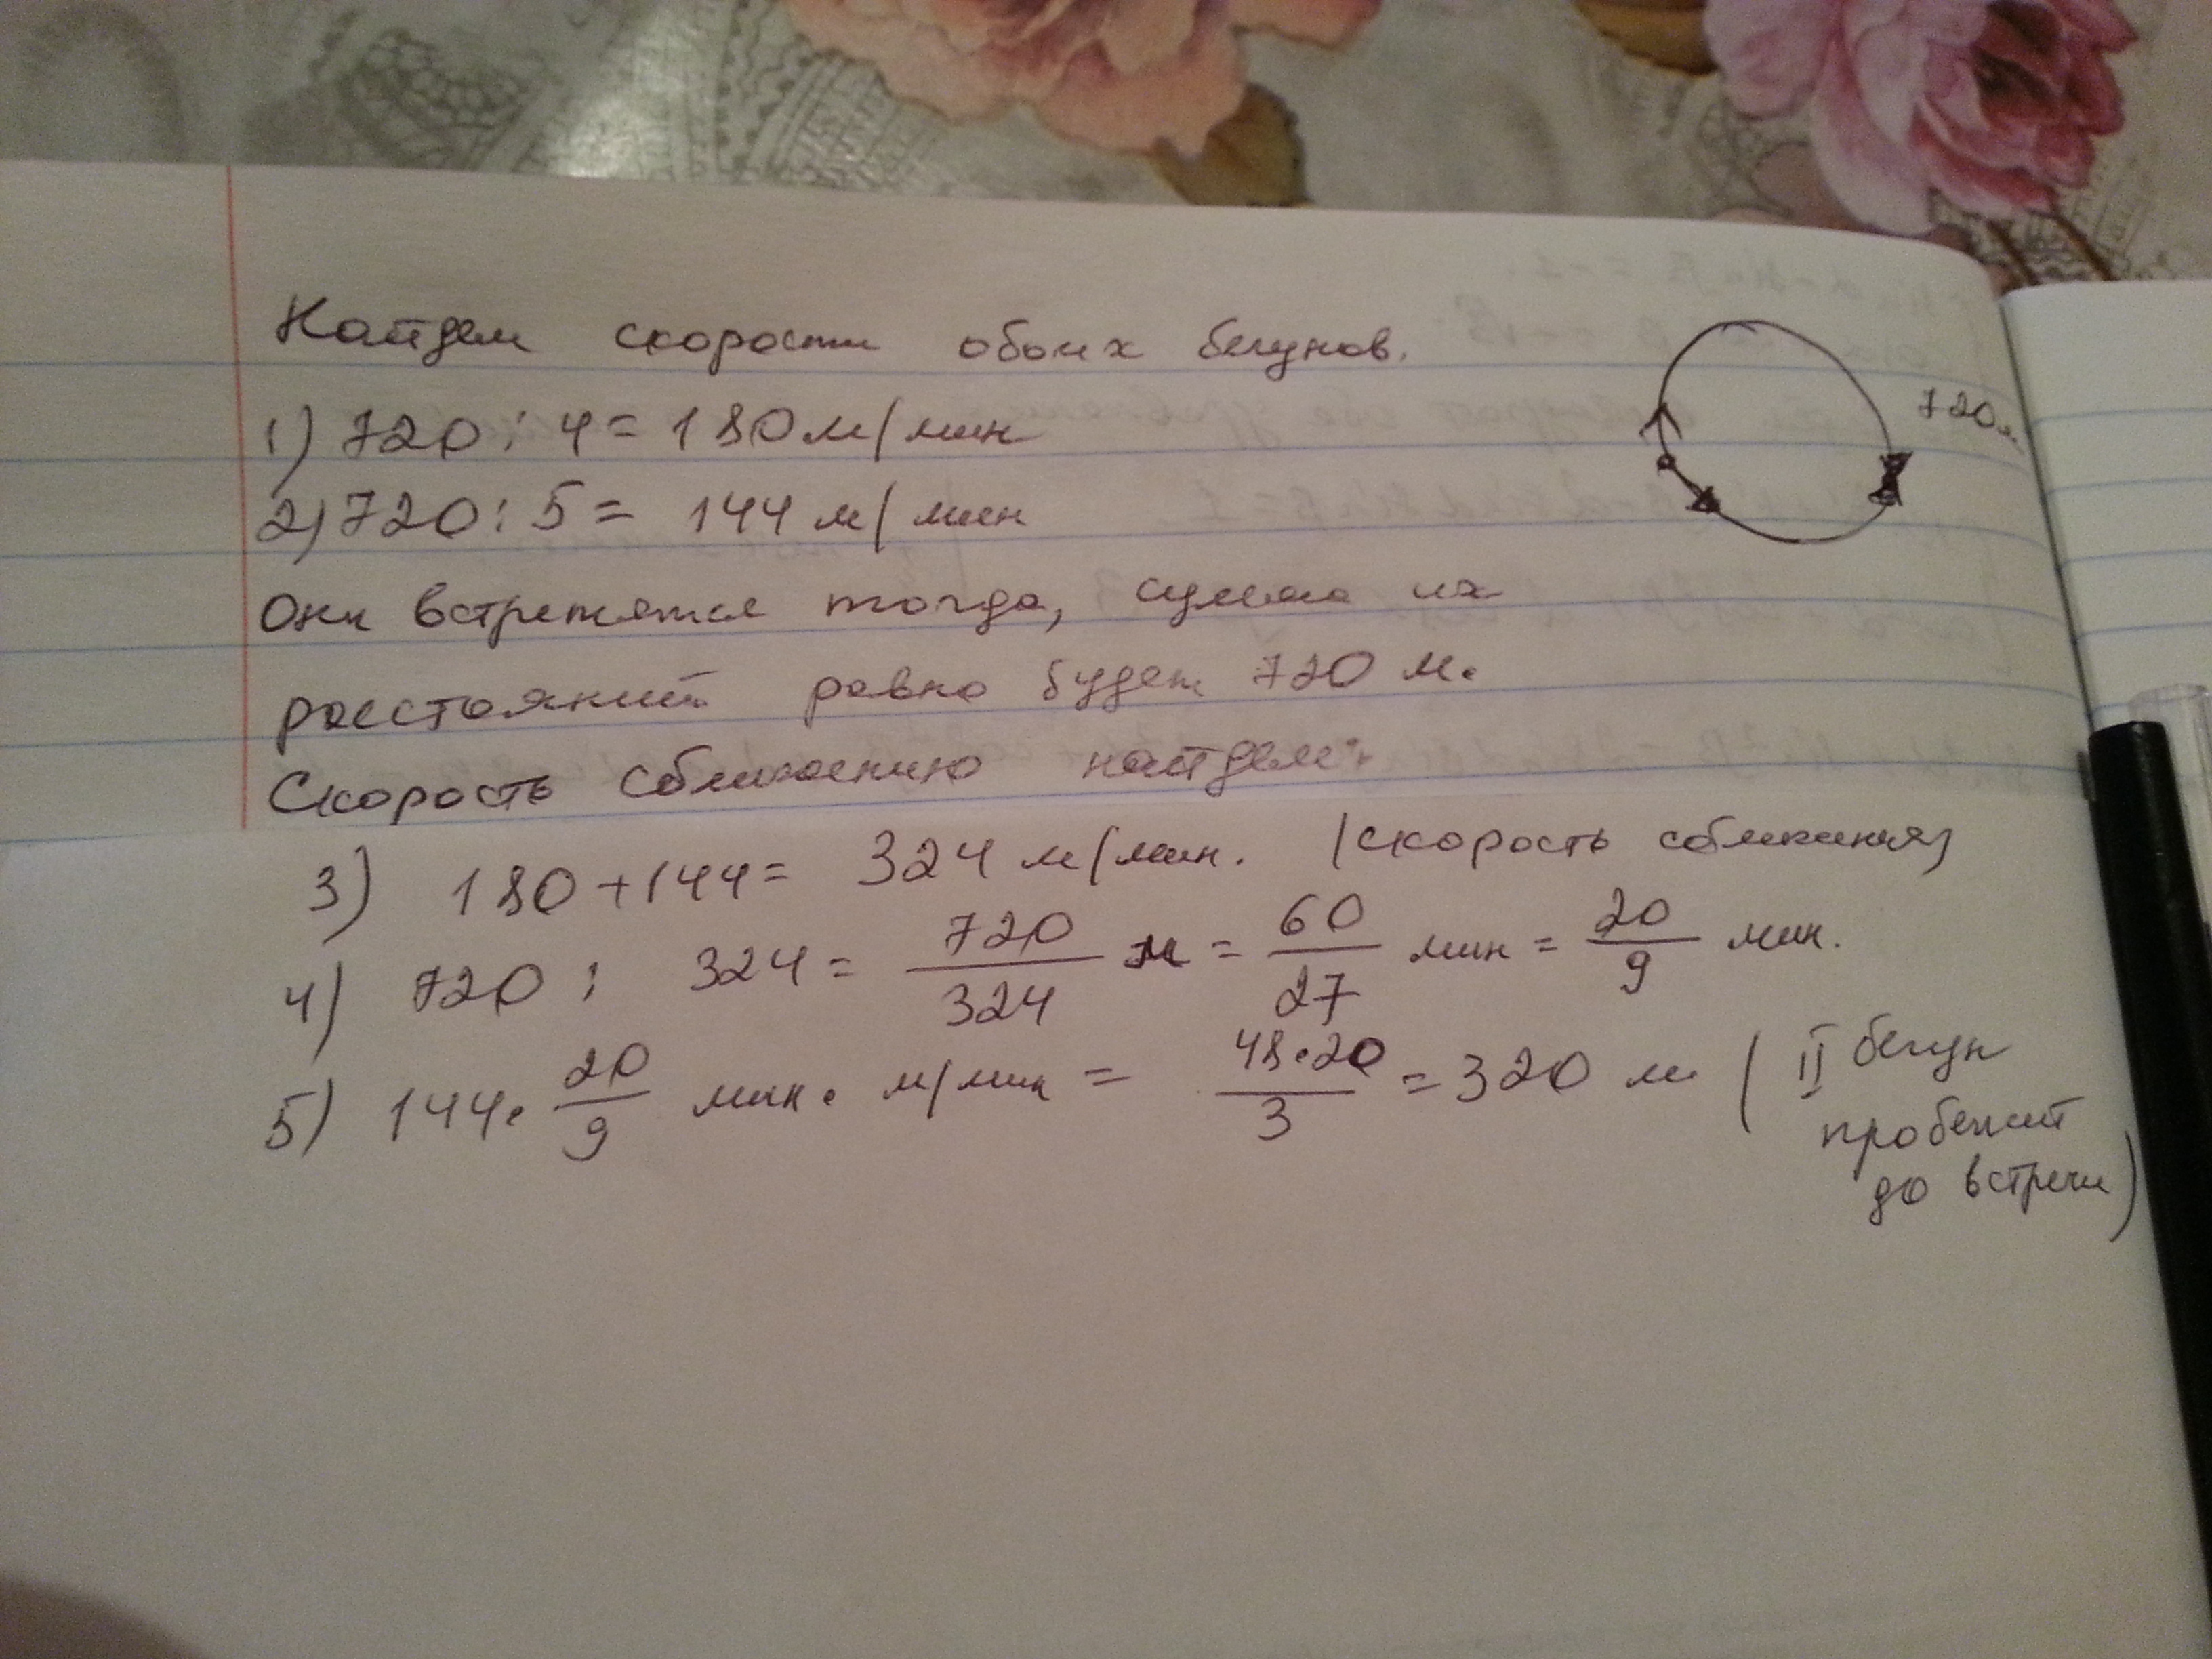 Найдем скорости обоих бегунов.
720м.
1) 720 : 4 = 180 м/мин
2) 720 : 5 = 144 м/мин
Они встретятся тогда, сумма их
расстояний равно будет 720 м.
Скорость сближению найдем:
3) 180 + 144 = 324 м/мин. (скорость сближения)
4) 720 : 324 = 720/324 м = 60/27 мин = 20/9 мин.
5) 144 · 20/9 мин · м/мин = 48·20/3 = 320 м ( II бегун
пробежит
до встречи)